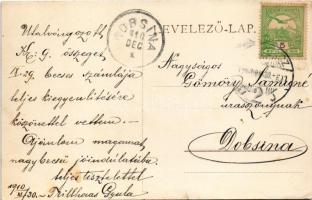 EVELEZŐ-LAP.
DOBSINA
910
DEC
Utalványozott
K: G. összeget
becses számlája
teljes kiegyenlítésére
köszönettel vettem. –
Ajánlom magamat
nagybecsű jóindulatába
teljes tisztelettel
1910
XI/30. – Gyula
Nagyságos
Gömöry Samuné
úrasszonynak
Dobsina